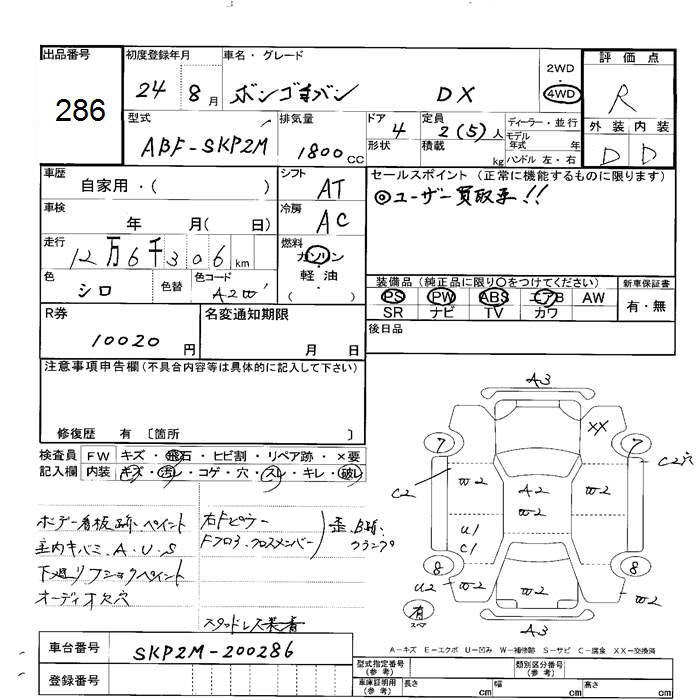 出品番号 初度登録年月 車名・グレード 評価点
286
24 8月 ボンゴバン DX 2WD 4WD R
型式 排気量 ドア 定員 ディーラー・並行 外装 内装
ABF-SKP2M 1800CC 4 2(5)人 モデル年式 年
形状 積載 kg ハンドル 左・右 D D
車歴 シフト セールスポイント (正常に機能するものに限ります)
自家用・( ) AT ◎ユーザー買取車!!
車検 冷房
年 月( 日) AC
走行 燃料
12万6千306km ガソリン・軽油( )
色 色替 色コード 装備品 (純正品に限り〇をつけてください) 新車保証書
シロ A2W PS PW ABS エアB AW 有・無
SR ナビ TV カワ
R券 名変通知期限 後日品
10020円 月 日
注意事項申告欄(不具合内容等は具体的に記入して下さい)
修復歴 有 〔箇所 〕
検査員 FW キズ・飛石・ヒビ割・リペア跡・×要
記入欄 内装 キズ・汚れ・コゲ・穴・スレ・キレ・破レ
ボデー看板跡、ペイント 右Fピラー
室内キバミ.A.U.S Fフロア.クロスメンバー 歪、B跡、クランプ
下廻りフショクペイント
オーディオ欠穴
スタッドレス装着
A3
7 XX 7
C2穴
C2 W2 A2 W2
W2
U1
C1
8 8
U2 W2 W2 W2
有 スペ
A3
A-キズ E-エクボ U-凹み W-補修跡 S-サビ C-腐食 XX-交換済
車台番号 SKP2M-200286 型式指定番号(参考) 類別区分番号(参考)
登録番号 車庫証明用(参考) 長さ cm 幅 cm 高さ cm